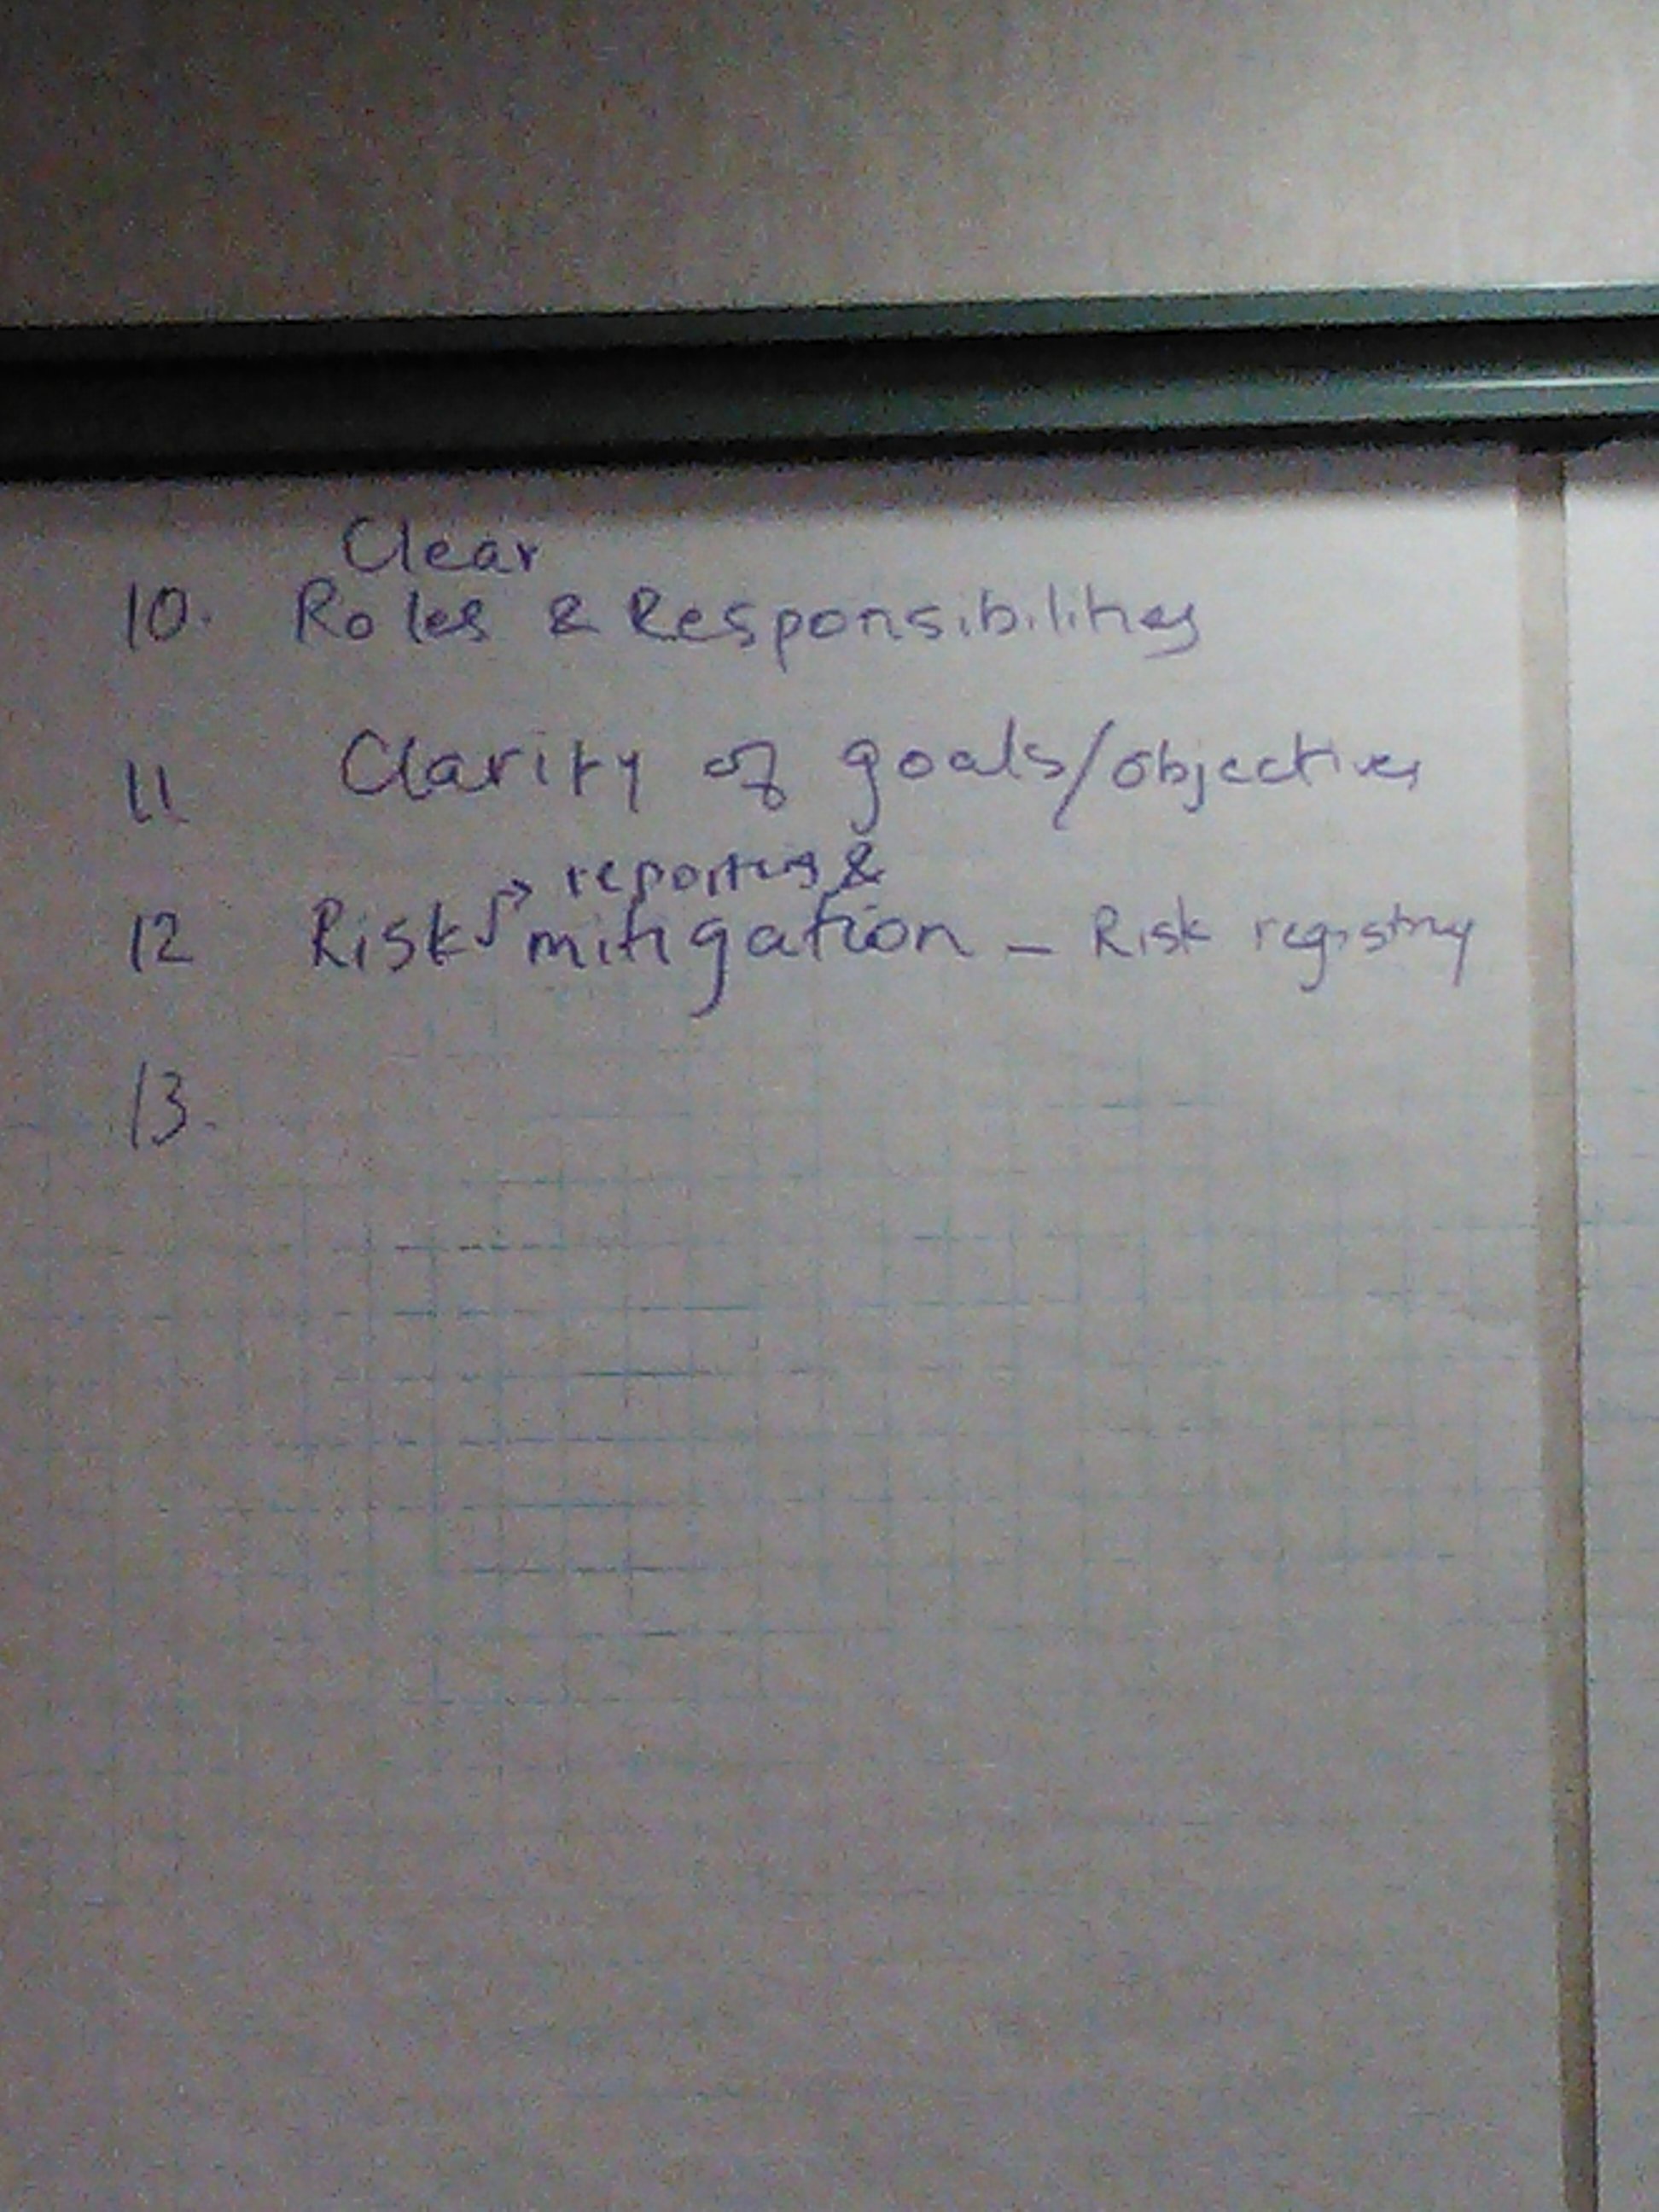 Clear
10. Roles & Responsibilities
11 Clarity of goals/objectives
reporting &
12 Risk mitigation – Risk registry
13.